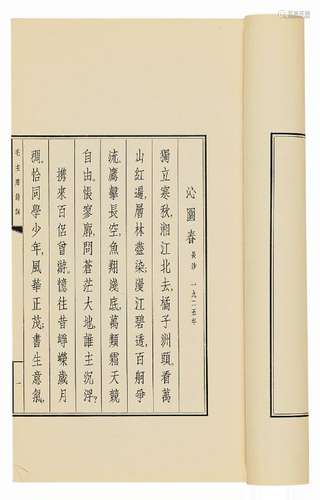 沁園春 長沙 一九二五年
獨立寒秋，湘江北去，橘子洲頭。看萬
山紅遍，層林盡染；漫江碧透，百舸爭
流。鷹擊長空，魚翔淺底，萬類霜天競
自由。悵寥廓，問蒼茫大地，誰主沉浮？
攜來百侶曾游。憶往昔崢嶸歲月
稠。恰同學少年，風華正茂；書生意氣，
毛主席詩詞
一